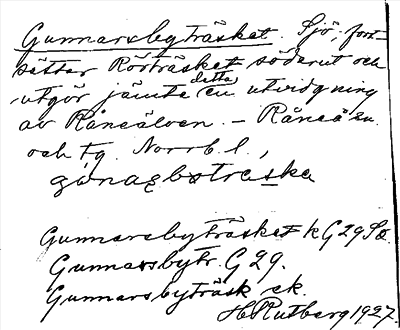 Gunnarsbyträsket. Sjö, fort-
sätter Rörträsket söderut och
utgör jämte detta en utvidgning
av Råneälven. – Råneå sn
och tg. Norrb. l.,
Gunnarsbyträsket k G 29 Sö.
Gunnarsbytr. G 29.
Gunnarsbyträsk ek.
H. Rutberg 1927.